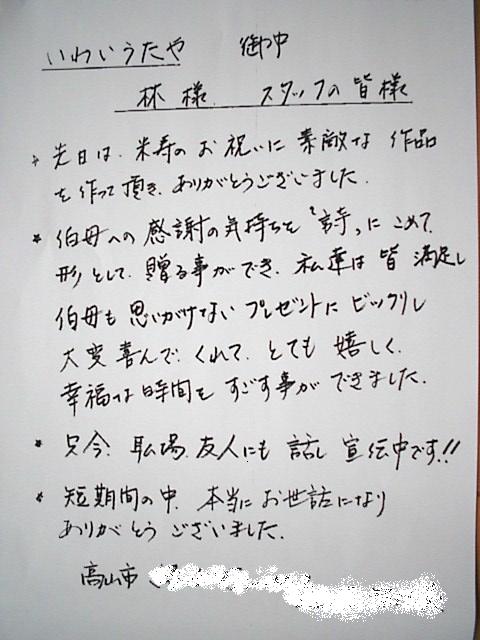 いわいうたや 御中
林様. スタッフの皆様
* 先日は、米寿のお祝いに素敵な作品
を作って頂き、ありがとうございました.
* 伯母への感謝の気持ちを「詩」にこめて、
形として、贈る事ができ、私達は皆満足し
伯母も思いがけないプレゼントにビックリし
大変喜んで、くれて、とても嬉しく、
幸福な時間をすごす事ができました.
* 只今、職場、友人にも話し宣伝中です!!
* 短期間の中、本当にお世話になり
ありがとうございました.
高山市